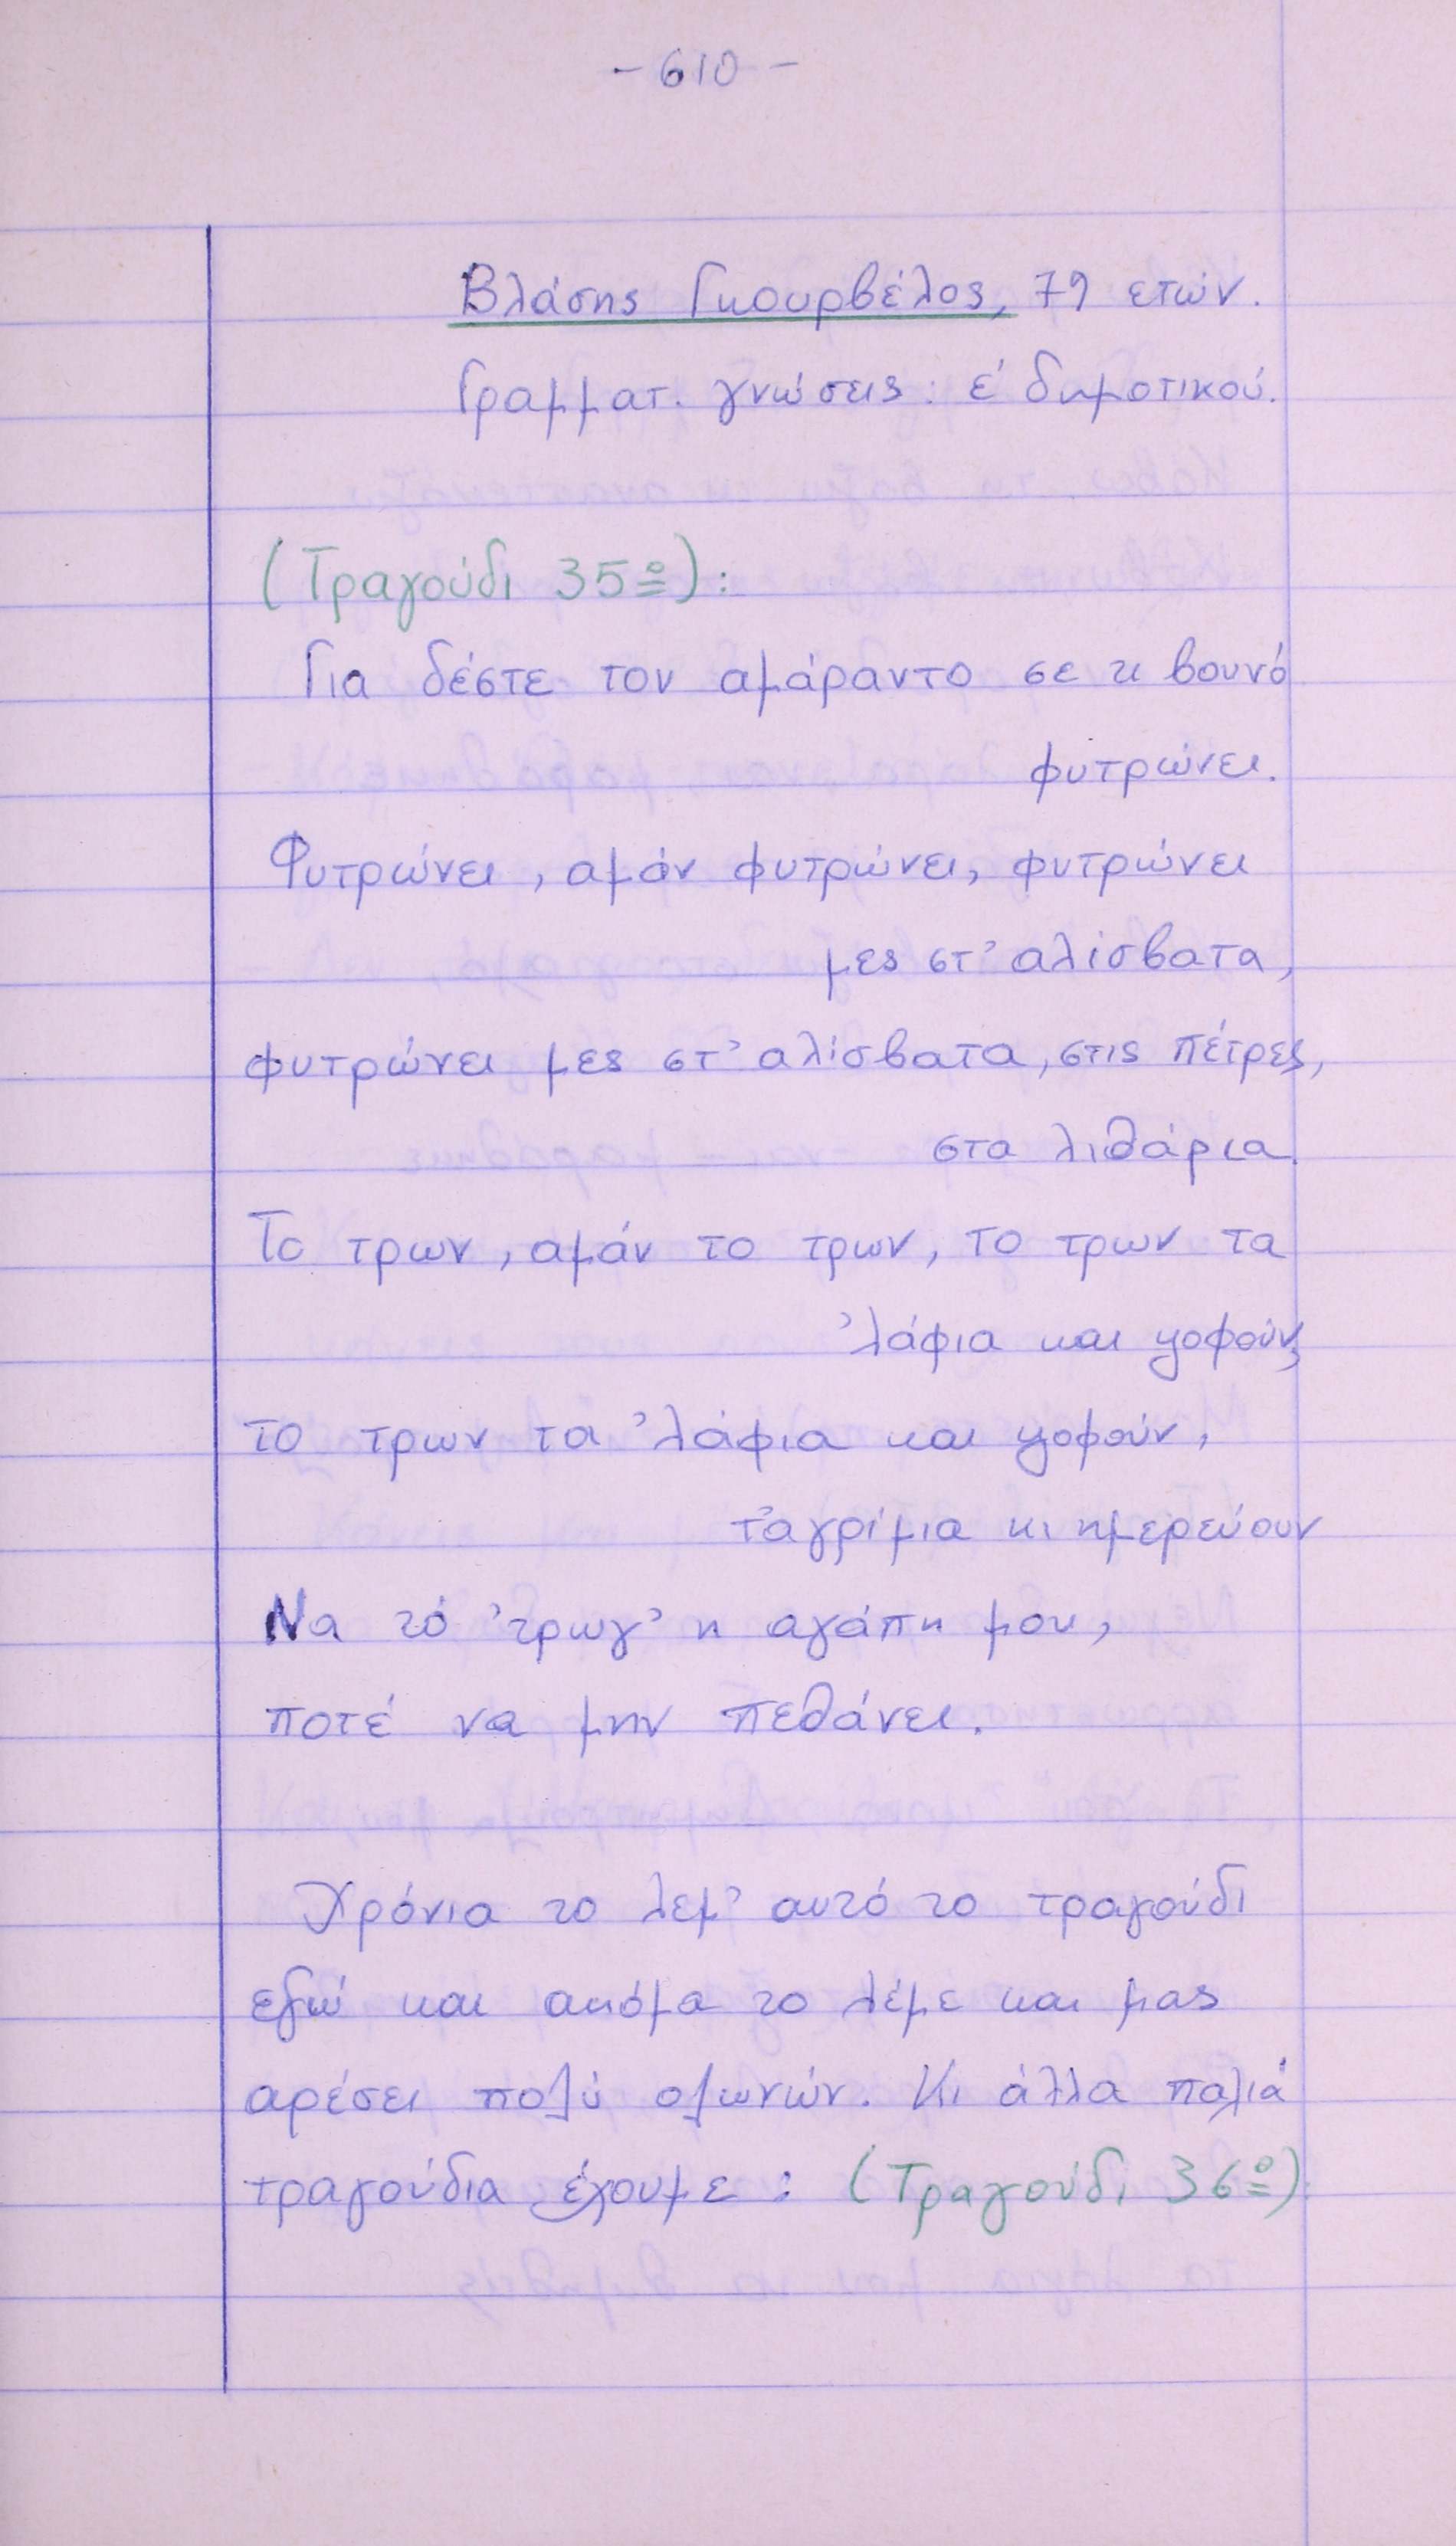 - 610 -
Βλάσης Γκουρβέλος, 79 ετών.
Γραμματ. γνώσεις: ε' δημοτικού.
(Τραγούδι 35º):
Για δέστε τον αμάραντο σε τι βουνό
φυτρώνει.
Φυτρώνει, αμάν φυτρώνει, φυτρώνει
μες στ' αλίσβατα,
φυτρώνει μες στ' αλίσβατα, στις πέτρες,
στα λιθάρια.
Το τρων, αμάν το τρων, το τρων τα
'λάφια και ψοφούν,
το τρων τα 'λάφια και ψοφούν,
τ'αγρίμια κι ημερεύουν
Να τό 'τρωγ' η αγάπη μου,
ποτέ να μην πεθάνει.
Χρόνια το λεμ' αυτό το τραγούδι
εδώ και ακόμα το λέμε και μας
αρέσει πολύ ολωνών. Κι άλλα παλιά
τραγούδια έχουμε: (Τραγούδι 36º):